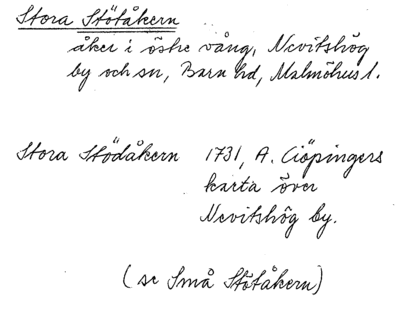 Stora Stötåkern
åker i östre vång, Nevitshög
by och sn, Bara hd, Malmöhus l.
Stora Stödåkern 1731, A. Ciöpingers
karta över
Nevitshög by.
(se Små Stötåkern)